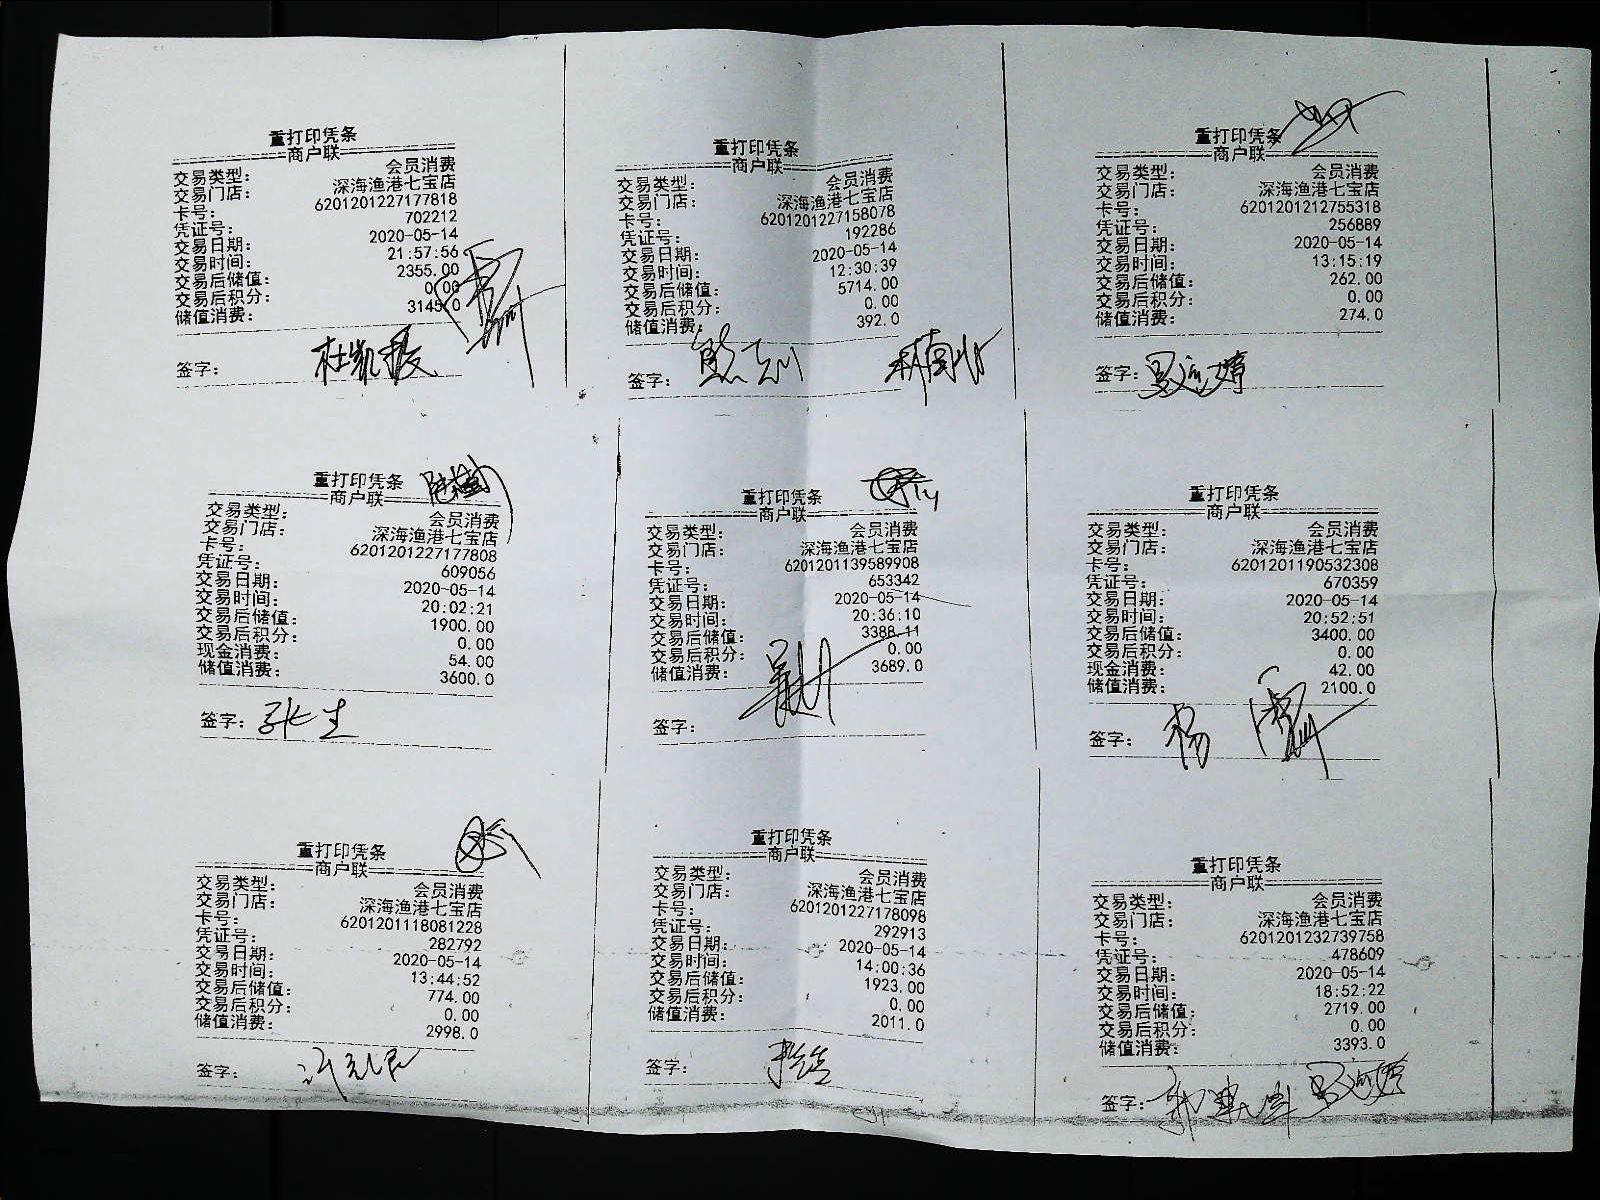 重打印凭条
商户联
交易类型： 会员消费
交易门店： 深海渔港七宝店
卡号： 6201201227177818
凭证号： 702212
交易日期： 2020-05-14
交易时间： 21:57:56
交易后储值： 2355.00
交易后积分： 0.00
储值消费： 3145.0
签字：
重打印凭条
商户联
交易类型： 会员消费
交易门店： 深海渔港七宝店
卡号： 6201201227158078
凭证号： 192286
交易日期： 2020-05-14
交易时间： 12:30:39
交易后储值： 5714.00
交易后积分： 0.00
储值消费： 392.0
签字：
重打印凭条
商户联
交易类型： 会员消费
交易门店： 深海渔港七宝店
卡号： 6201201212755318
凭证号： 256889
交易日期： 2020-05-14
交易时间： 13:15:19
交易后储值： 262.00
交易后积分： 0.00
储值消费： 274.0
签字：
重打印凭条
商户联
交易类型： 会员消费
交易门店： 深海渔港七宝店
卡号： 6201201227177808
凭证号： 609056
交易日期： 2020-05-14
交易时间： 20:02:21
交易后储值： 1900.00
交易后积分： 0.00
现金消费： 54.00
储值消费： 3600.0
签字： 张生
重打印凭条
商户联
交易类型： 会员消费
交易门店： 深海渔港七宝店
卡号： 6201201139589908
凭证号： 653342
交易日期： 2020-05-14
交易时间： 20:36:10
交易后储值： 3388.11
交易后积分： 0.00
储值消费： 3689.0
签字：
重打印凭条
商户联
交易类型： 会员消费
交易门店： 深海渔港七宝店
卡号： 6201201190532308
凭证号： 670359
交易日期： 2020-05-14
交易时间： 20:52:51
交易后储值： 3400.00
交易后积分： 0.00
现金消费： 42.00
储值消费： 2100.0
签字： 杨
重打印凭条
商户联
交易类型： 会员消费
交易门店： 深海渔港七宝店
卡号： 6201201118081228
凭证号： 282792
交易日期： 2020-05-14
交易时间： 13:44:52
交易后储值： 774.00
交易后积分： 0.00
储值消费： 2998.0
签字：
重打印凭条
商户联
交易类型： 会员消费
交易门店： 深海渔港七宝店
卡号： 6201201227178098
凭证号： 292913
交易日期： 2020-05-14
交易时间： 14:00:36
交易后储值： 1923.00
交易后积分： 0.00
储值消费： 2011.0
签字：
重打印凭条
商户联
交易类型： 会员消费
交易门店： 深海渔港七宝店
卡号： 6201201232739758
凭证号： 478609
交易日期： 2020-05-14
交易时间： 18:52:22
交易后储值： 2719.00
交易后积分： 0.00
储值消费： 3393.0
签字：